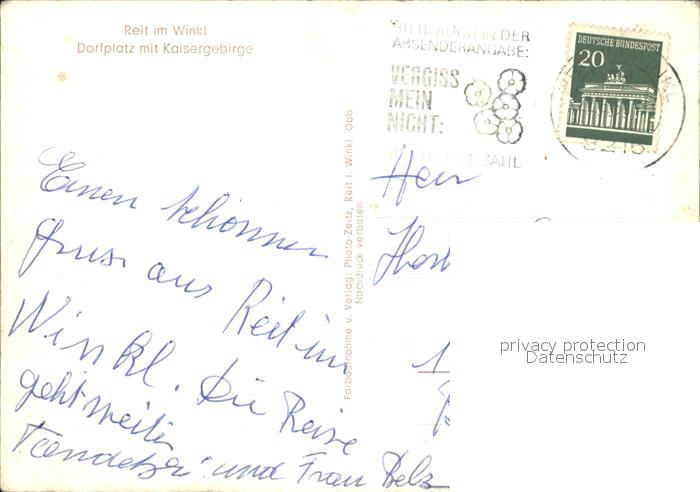 Reit im Winkl
Dorfplatz mit Kaisergebirge
BITTE AUCH IN DER
ABSENDERANGABE:
VERGISS
MEIN
NICHT:
DIE POSTLEITZAHL
DEUTSCHE BUNDESPOST
20
Farbaufnahme u. Verlag: Photo-Zeitz, Reit i. Winkl, Obb
Nachdruck verboten
Herr
Einen schönnen
Gruss aus Reit im
Winkl. Die Reise
geht weiter
und Frau Belz
privacy protection
Datenschutz